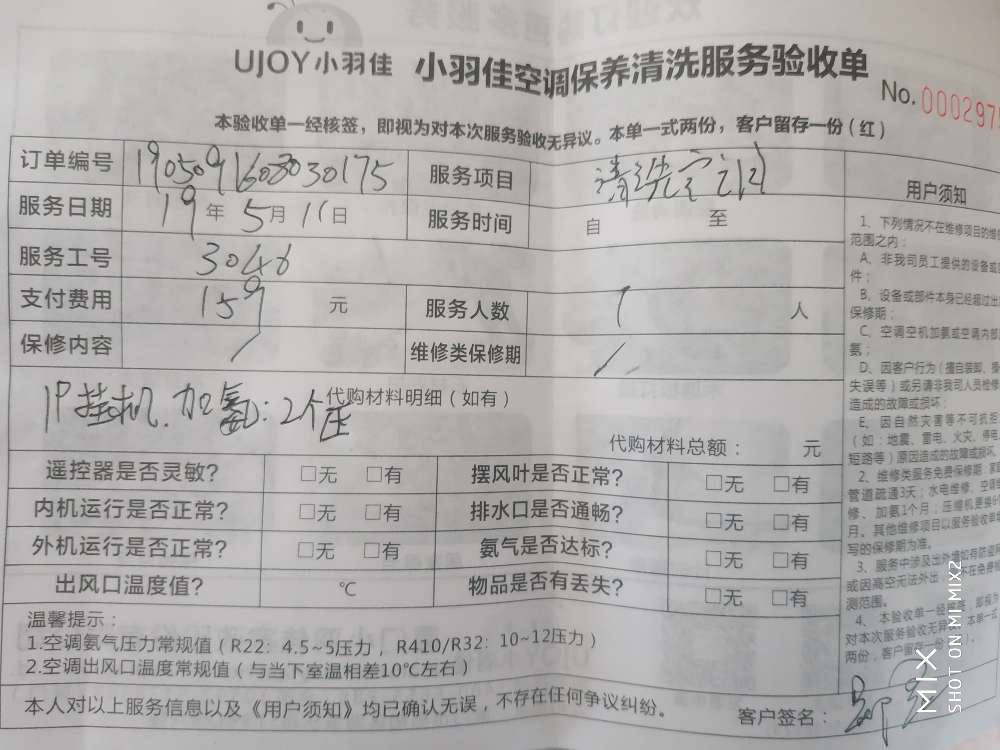 UJOY小羽佳 小羽佳空调保养清洗服务验收单
No. 0002975
本验收单一经核签，即视为对本次服务验收无异议。本单一式两份，客户留存一份（红）
订单编号 190509160303 0175 服务项目 清洗空调
服务日期 19年5月11日 服务时间 自 至
服务工号 3046
支付费用 159 元 服务人数 1 人
保修内容 / 维修类保修期 /
代购材料明细（如有）
1P挂机. 加氨: 2个压
代购材料总额： 元
遥控器是否灵敏? □无 □有 摆风叶是否正常? □无 □有
内机运行是否正常? □无 □有 排水口是否通畅? □无 □有
外机运行是否正常? □无 □有 氨气是否达标? □无 □有
出风口温度值? ℃ 物品是否有丢失? □无 □有
温馨提示：
1.空调氨气压力常规值（R22：4.5~5压力，R410/R32：10~12压力）
2.空调出风口温度常规值（与当下室温相差10℃左右）
本人对以上服务信息以及《用户须知》均已确认无误，不存在任何争议纠纷。
客户签名：
用户须知
1、下列情况不在维修项目的维修
范围之内：
A、非我司员工提供的设备或
件；
B、设备或部件本身已经超过出
保修期；
C、空调空机加氨或空调内部
氨；
D、因客户行为（擅自装卸、操
失误等）或另请非我司人员检修
造成的故障或损坏；
E、因自然灾害等不可抗拒
（如：地震、雷电、火灾、停电
短路等）原因造成的故障或损坏
2、维修类服务免费保修期：家
管道疏通3天；水电维修、空调
修、加氨1个月；压缩机更换
月。其他维修项目以服务验收单
写的保修期为准。
3、服务中涉及出外墙如有防盗
或因高空无法外出，不在免费
测范围。
4、本验收单一经核签，即视为
对本次服务验收无异议。本单一式
两份，客户留存一份
MIX
SHOT ON MI MIX2